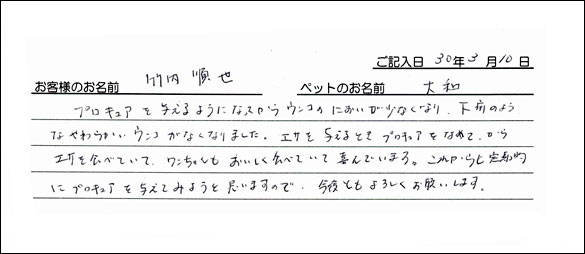 ご記入日 30年3月10日
お客様のお名前 竹内 順也 ペットのお名前 大和
プロキュアを与えるようになってからウンコのにおいが少なくなり、下痢のよう
なやわらかいウンコがなくなりました。エサを与えるときプロキュアをなめてから
エサを食べていて、ワンちゃんもおいしく食べていて喜んでいます。これからも定期的
にプロキュアを与えてみようと思いますので、今後ともよろしくお願いします。